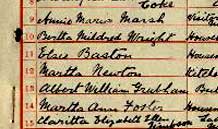 Coke
9 Annie Maria Marsh Visitor
10 Bertha Mildred Wright House
11 Elsie Baston
12 Martha Newton Kitch
13 Albert William Grubham But
14 Martha Ann Foster House
15 Claritta Elizabeth Ellen